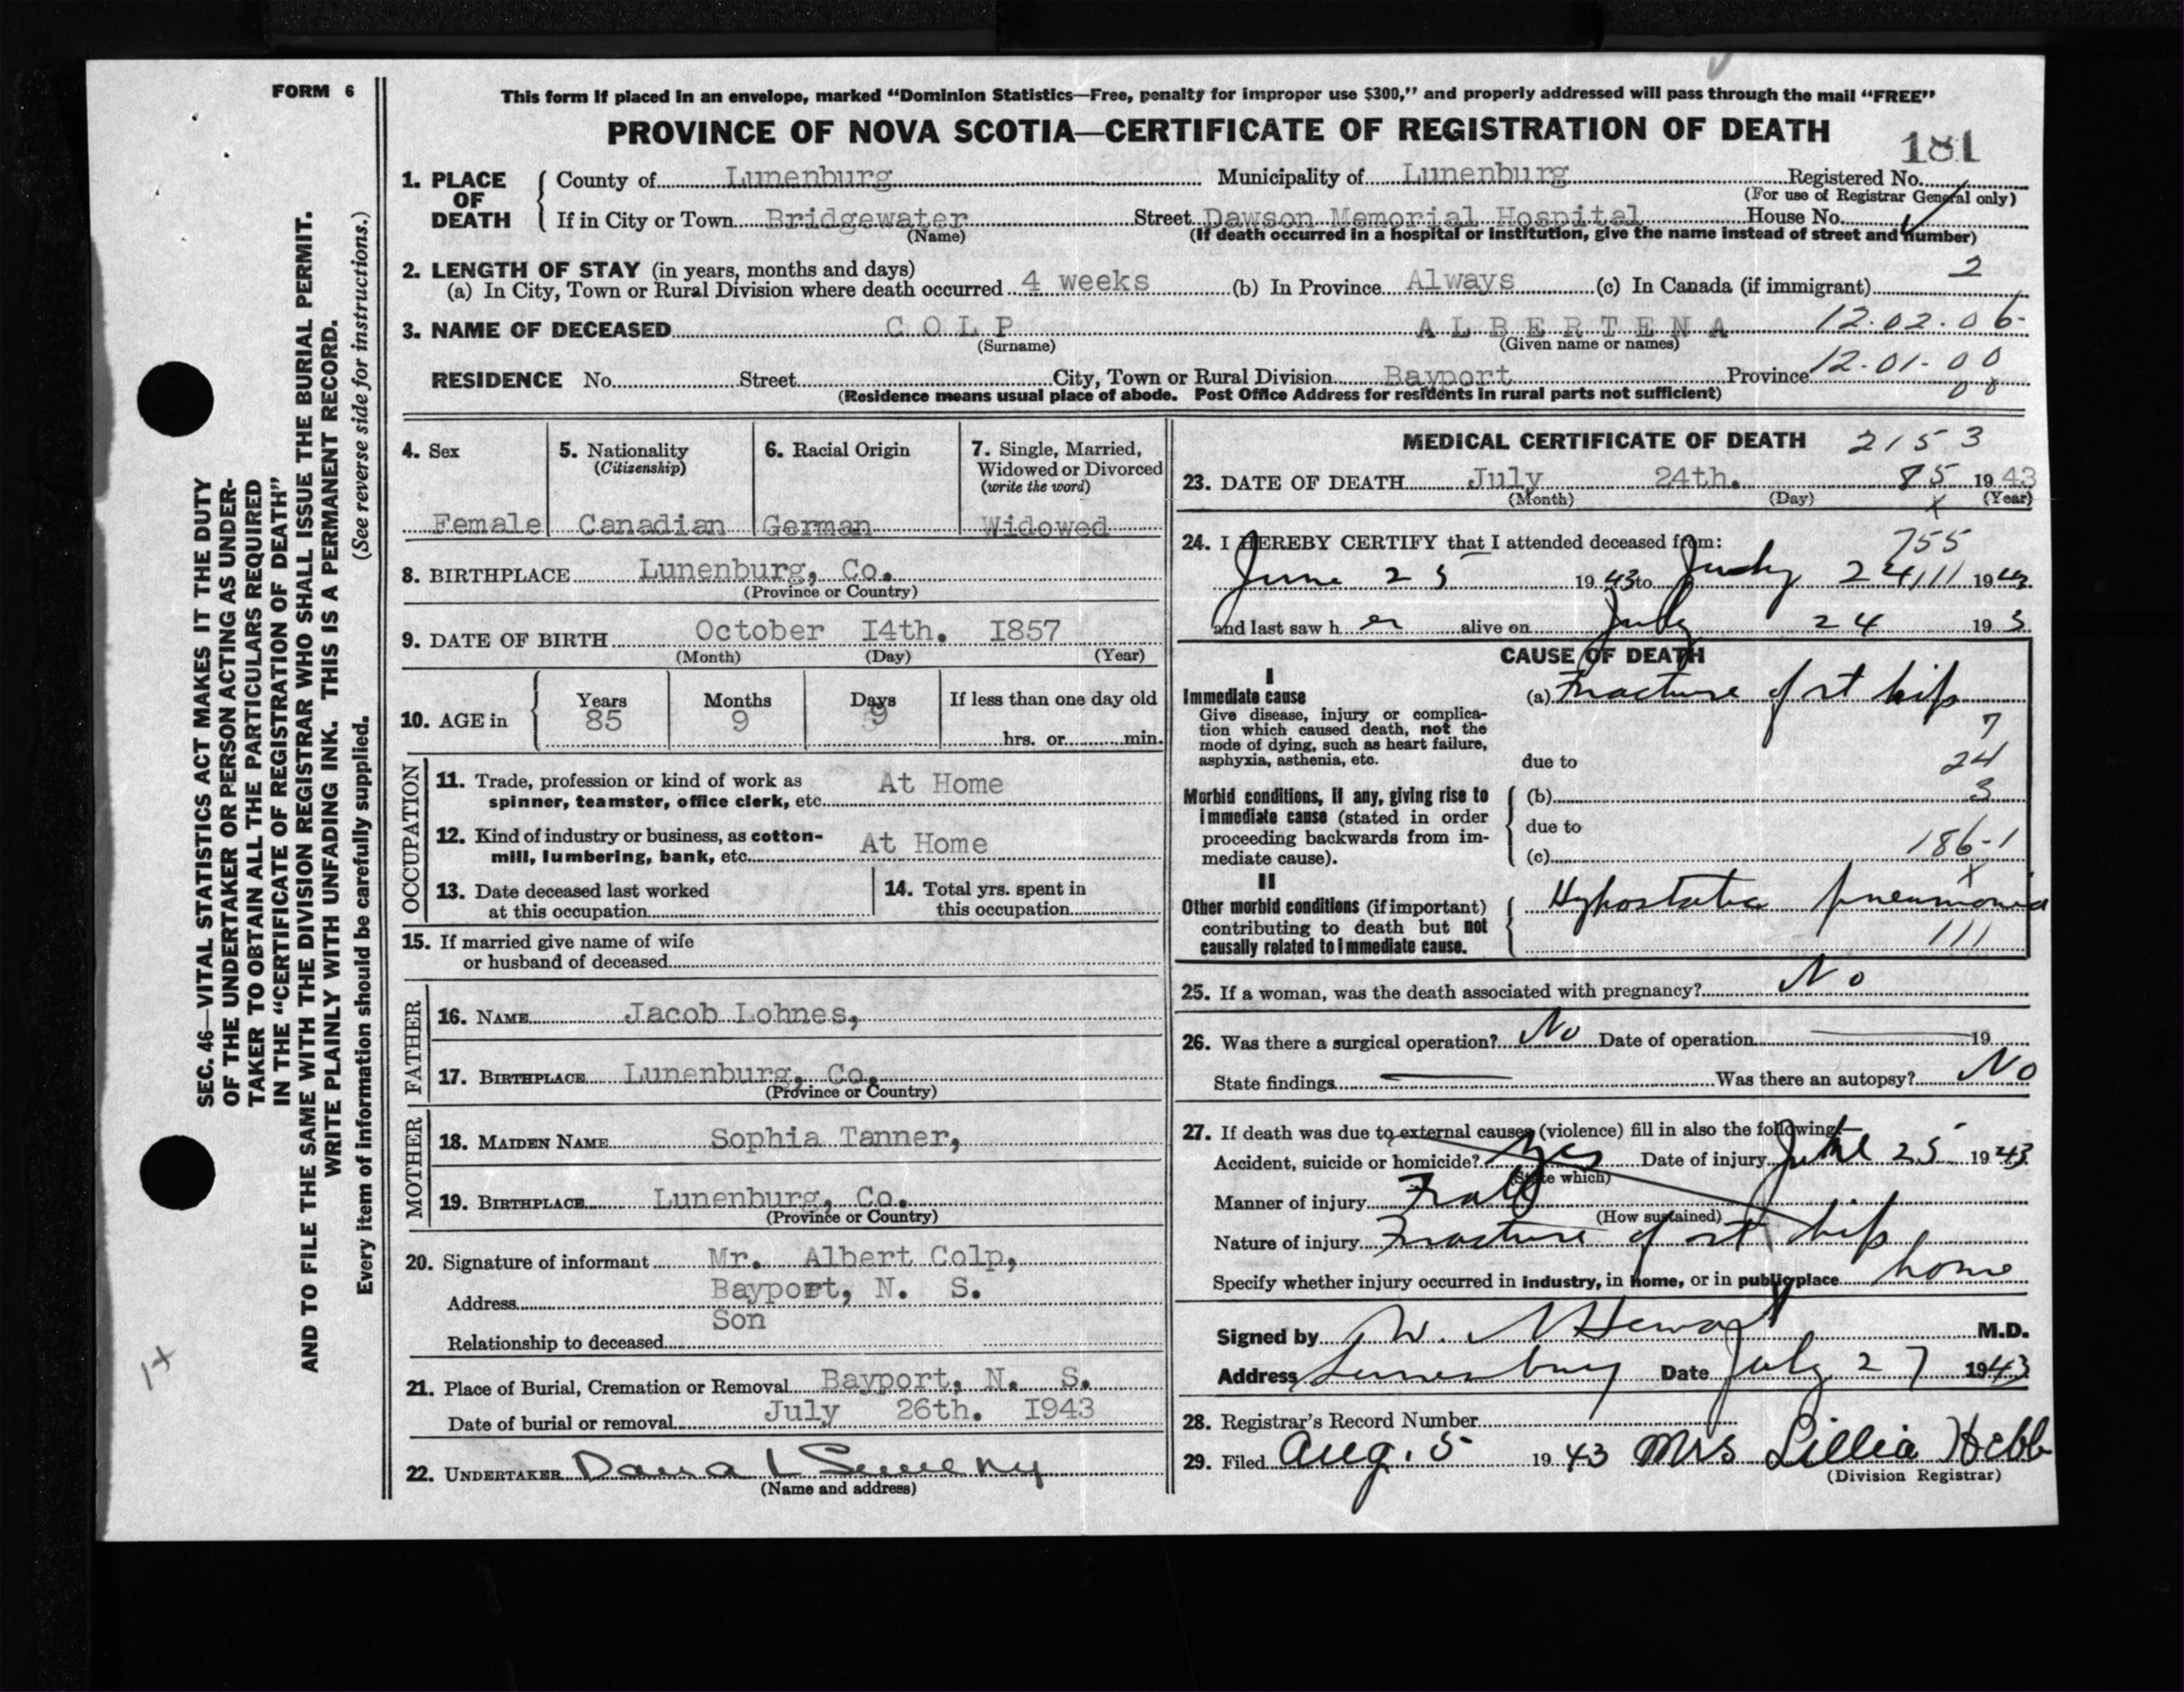 FORM 6
This form if placed in an envelope, marked “Dominion Statistics—Free, penalty for improper use $300,” and properly addressed will pass through the mail “FREE”
PROVINCE OF NOVA SCOTIA—CERTIFICATE OF REGISTRATION OF DEATH
181
1. PLACE OF DEATH
County of Lunenburg Municipality of Lunenburg Registered No.
(For use of Registrar General only)
If in City or Town Bridgewater Street Dawson Memorial Hospital House No.
(Name) (If death occurred in a hospital or institution, give the name instead of street and number)
2. LENGTH OF STAY (in years, months and days) 2
(a) In City, Town or Rural Division where death occurred 4 weeks (b) In Province Always (c) In Canada (if immigrant)
3. NAME OF DECEASED COLP ALBERTENA 12.02.06
(Surname) (Given name or names)
RESIDENCE No. Street City, Town or Rural Division Bayport Province 12-01-00
(Residence means usual place of abode. Post Office Address for residents in rural parts not sufficient) 00
4. Sex
Female
5. Nationality
(Citizenship)
Canadian
6. Racial Origin
German
7. Single, Married,
Widowed or Divorced
(write the word)
Widowed
8. BIRTHPLACE Lunenburg, Co.
(Province or Country)
9. DATE OF BIRTH October I4th. I857
(Month) (Day) (Year)
10. AGE in Years Months Days If less than one day old
85 9 9
hrs. or min.
OCCUPATION
11. Trade, profession or kind of work as
spinner, teamster, office clerk, etc. At Home
12. Kind of industry or business, as cotton-
mill, lumbering, bank, etc. At Home
13. Date deceased last worked
at this occupation
14. Total yrs. spent in
this occupation
15. If married give name of wife
or husband of deceased
FATHER
16. NAME Jacob Lohnes,
17. BIRTHPLACE Lunenburg, Co.
(Province or Country)
MOTHER
18. MAIDEN NAME Sophia Tanner,
19. BIRTHPLACE Lunenburg, Co.
(Province or Country)
20. Signature of informant Mr. Albert Colp,
Address Bayport, N. S.
Relationship to deceased Son
21. Place of Burial, Cremation or Removal Bayport, N. S.
Date of burial or removal July 26th. I943
22. UNDERTAKER Dana L Sweeny
(Name and address)
MEDICAL CERTIFICATE OF DEATH 2153
23. DATE OF DEATH July 24th. 85 1943
(Month) (Day) (Year)
x
24. I HEREBY CERTIFY that I attended deceased from: 755
June 25 1943 to July 24 1943
and last saw her alive on July 24 193
CAUSE OF DEATH
I
Immediate cause
Give disease, injury or complica-
tion which caused death, not the
mode of dying, such as heart failure,
asphyxia, asthenia, etc.
(a) Fracture of rt hip
7
due to 24
Morbid conditions, if any, giving rise to
immediate cause (stated in order
proceeding backwards from im-
mediate cause).
(b) 3
due to
(c) 186-1
x
II
Other morbid conditions (if important)
contributing to death but not
causally related to immediate cause.
Hypostatic pneumonia
111
25. If a woman, was the death associated with pregnancy? No
26. Was there a surgical operation? No Date of operation 19
State findings Was there an autopsy? No
27. If death was due to external causes (violence) fill in also the following:—
Accident, suicide or homicide? Yes Date of injury June 25 1943
(State which)
Manner of injury Fall
(How sustained)
Nature of injury Fracture of rt hip
Specify whether injury occurred in industry, in home, or in public place home
Signed by W. M.D.
Address Lunenburg Date July 27 1943
28. Registrar's Record Number
29. Filed Aug. 5 1943 Mrs Lillia Hebb
(Division Registrar)
SEC. 46—VITAL STATISTICS ACT MAKES IT THE DUTY
OF THE UNDERTAKER OR PERSON ACTING AS UNDER-
TAKER TO OBTAIN ALL THE PARTICULARS REQUIRED
IN THE “CERTIFICATE OF REGISTRATION OF DEATH”
AND TO FILE THE SAME WITH THE DIVISION REGISTRAR WHO SHALL ISSUE THE BURIAL PERMIT.
WRITE PLAINLY WITH UNFADING INK. THIS IS A PERMANENT RECORD.
Every item of information should be carefully supplied. (See reverse side for instructions.)